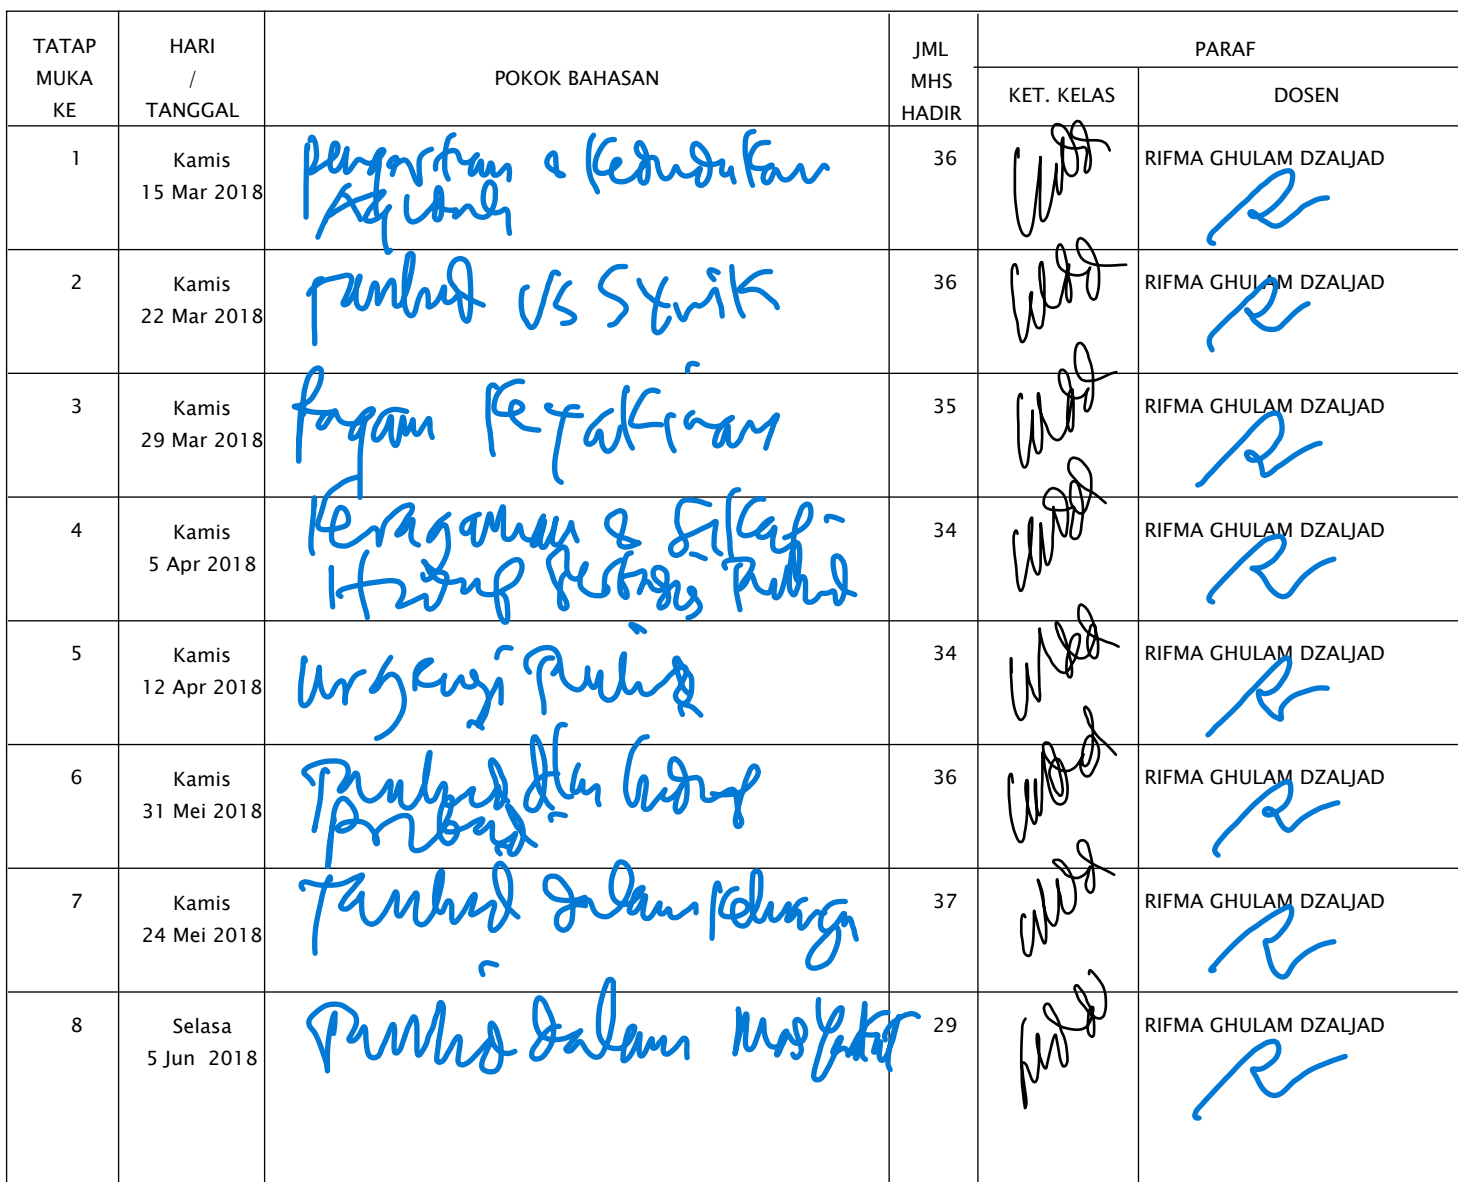 TATAP MUKA KE
HARI / TANGGAL
POKOK BAHASAN
JML MHS HADIR
PARAF
KET. KELAS
DOSEN
1
Kamis
15 Mar 2018
pengertian & Kedudukan
Aqidah
36
RIFMA GHULAM DZALJAD
2
Kamis
22 Mar 2018
Tauhid vs Syirik
36
RIFMA GHULAM DZALJAD
3
Kamis
29 Mar 2018
Ragam Keyakinan
35
RIFMA GHULAM DZALJAD
4
Kamis
5 Apr 2018
Keragaman & Sikap
Hidup Tauhid
34
RIFMA GHULAM DZALJAD
5
Kamis
12 Apr 2018
Urgensi Tauhid
34
RIFMA GHULAM DZALJAD
6
Kamis
31 Mei 2018
Tauhid dlm hidup
pribadi
36
RIFMA GHULAM DZALJAD
7
Kamis
24 Mei 2018
Tauhid dalam Keluarga
37
RIFMA GHULAM DZALJAD
8
Selasa
5 Jun 2018
Tauhid dalam Masyarakat
29
RIFMA GHULAM DZALJAD